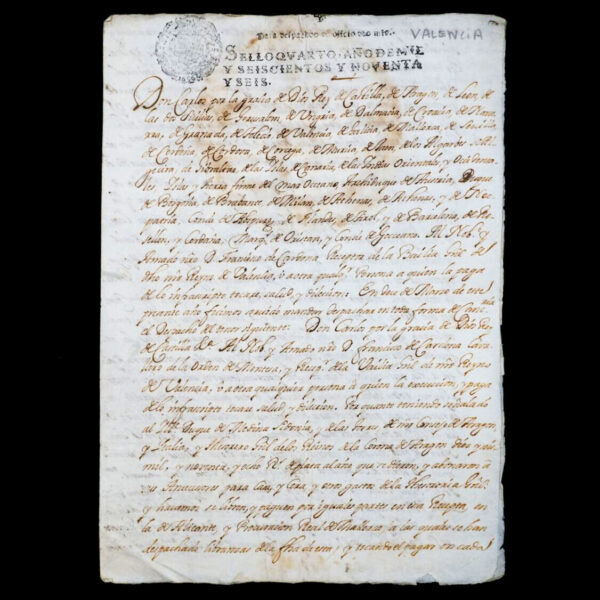 Para despachos de officio dos mrs.
VALENCIA
SELLO QVARTO, AÑO DE MIL
Y SEISCIENTOS Y NOVENTA
Y SEIS.
Don Carlos por la gracia de Dios Rey de Castilla, de Aragon, de Leon, de
las dos Sicilias, de Jerusalem, de Ungria, de Dalmacia, de Croacia, de Navar
ra, de Granada, de Toledo, de Valencia, de Galicia, de Mallorca, de Sevilla
de Cerdeña, de Cordova, de Corcega, de Murcia, de Jaen, de los Algarbes, de Al
gecira, de Gibraltar, de las Islas de Canaria, de las Indias Orientales, y Occidenta
les, Islas, y tierra firme del mar Oceano, Archiduque de Austria, Duque
de Borgoña, de Brabante, de Milan, de Athenas, y de Neo
patria, Conde de Abspurg, de Flandes, de Tirol, y de Barcelona, de Ro
sellon, y Cerdaña, Marqs. de Oristan, y Conde de Goceano. Al Nob. y
Amado nro D. Francisco de Cardona Receptor de la Bailia Gnl. de
dho nro Reyno de Valencia, o a otra qualqr. persona a quien la paga
de lo infrascripto tocare, salud, y dileccion: En dos de Marzo de este
presente año fuimos servido mandar despachar en toda forma de Canc
el Despacho del tenor siguiente: Don Carlos por la gracia de Dios Rey
de Castilla &a. Al Nob. y Amado nro D. Francisco de Cardona Cava
llero de la Orden de Montesa, y Recepr. de la Bailia Gnl. de nro Reyno
de Valencia, o a otra qualquiera persona a quien la execucion, y paga
de lo infrascripto tocare salud, y dileccion. Por quanto teniendo señalado
al Duque de Medina Sidonia, de las tres de mis Consejos de Aragon,
y Italia, y Thesorero Gnl. de los Reynos de la Corona de Aragon
mil, y noventa, y ocho Rs. de plata al año
sus Antecessores para Casa, y Cera, y otros gastos de la Thesoreria Gnl.
y haverse de librar, y paguen por iguales partes en essa Recepta, en
la de Alicante, y Procuracion Real de Mallorca, a las quales se han
despachado libranzas de la fha de esta, y tocando el pagar en cada